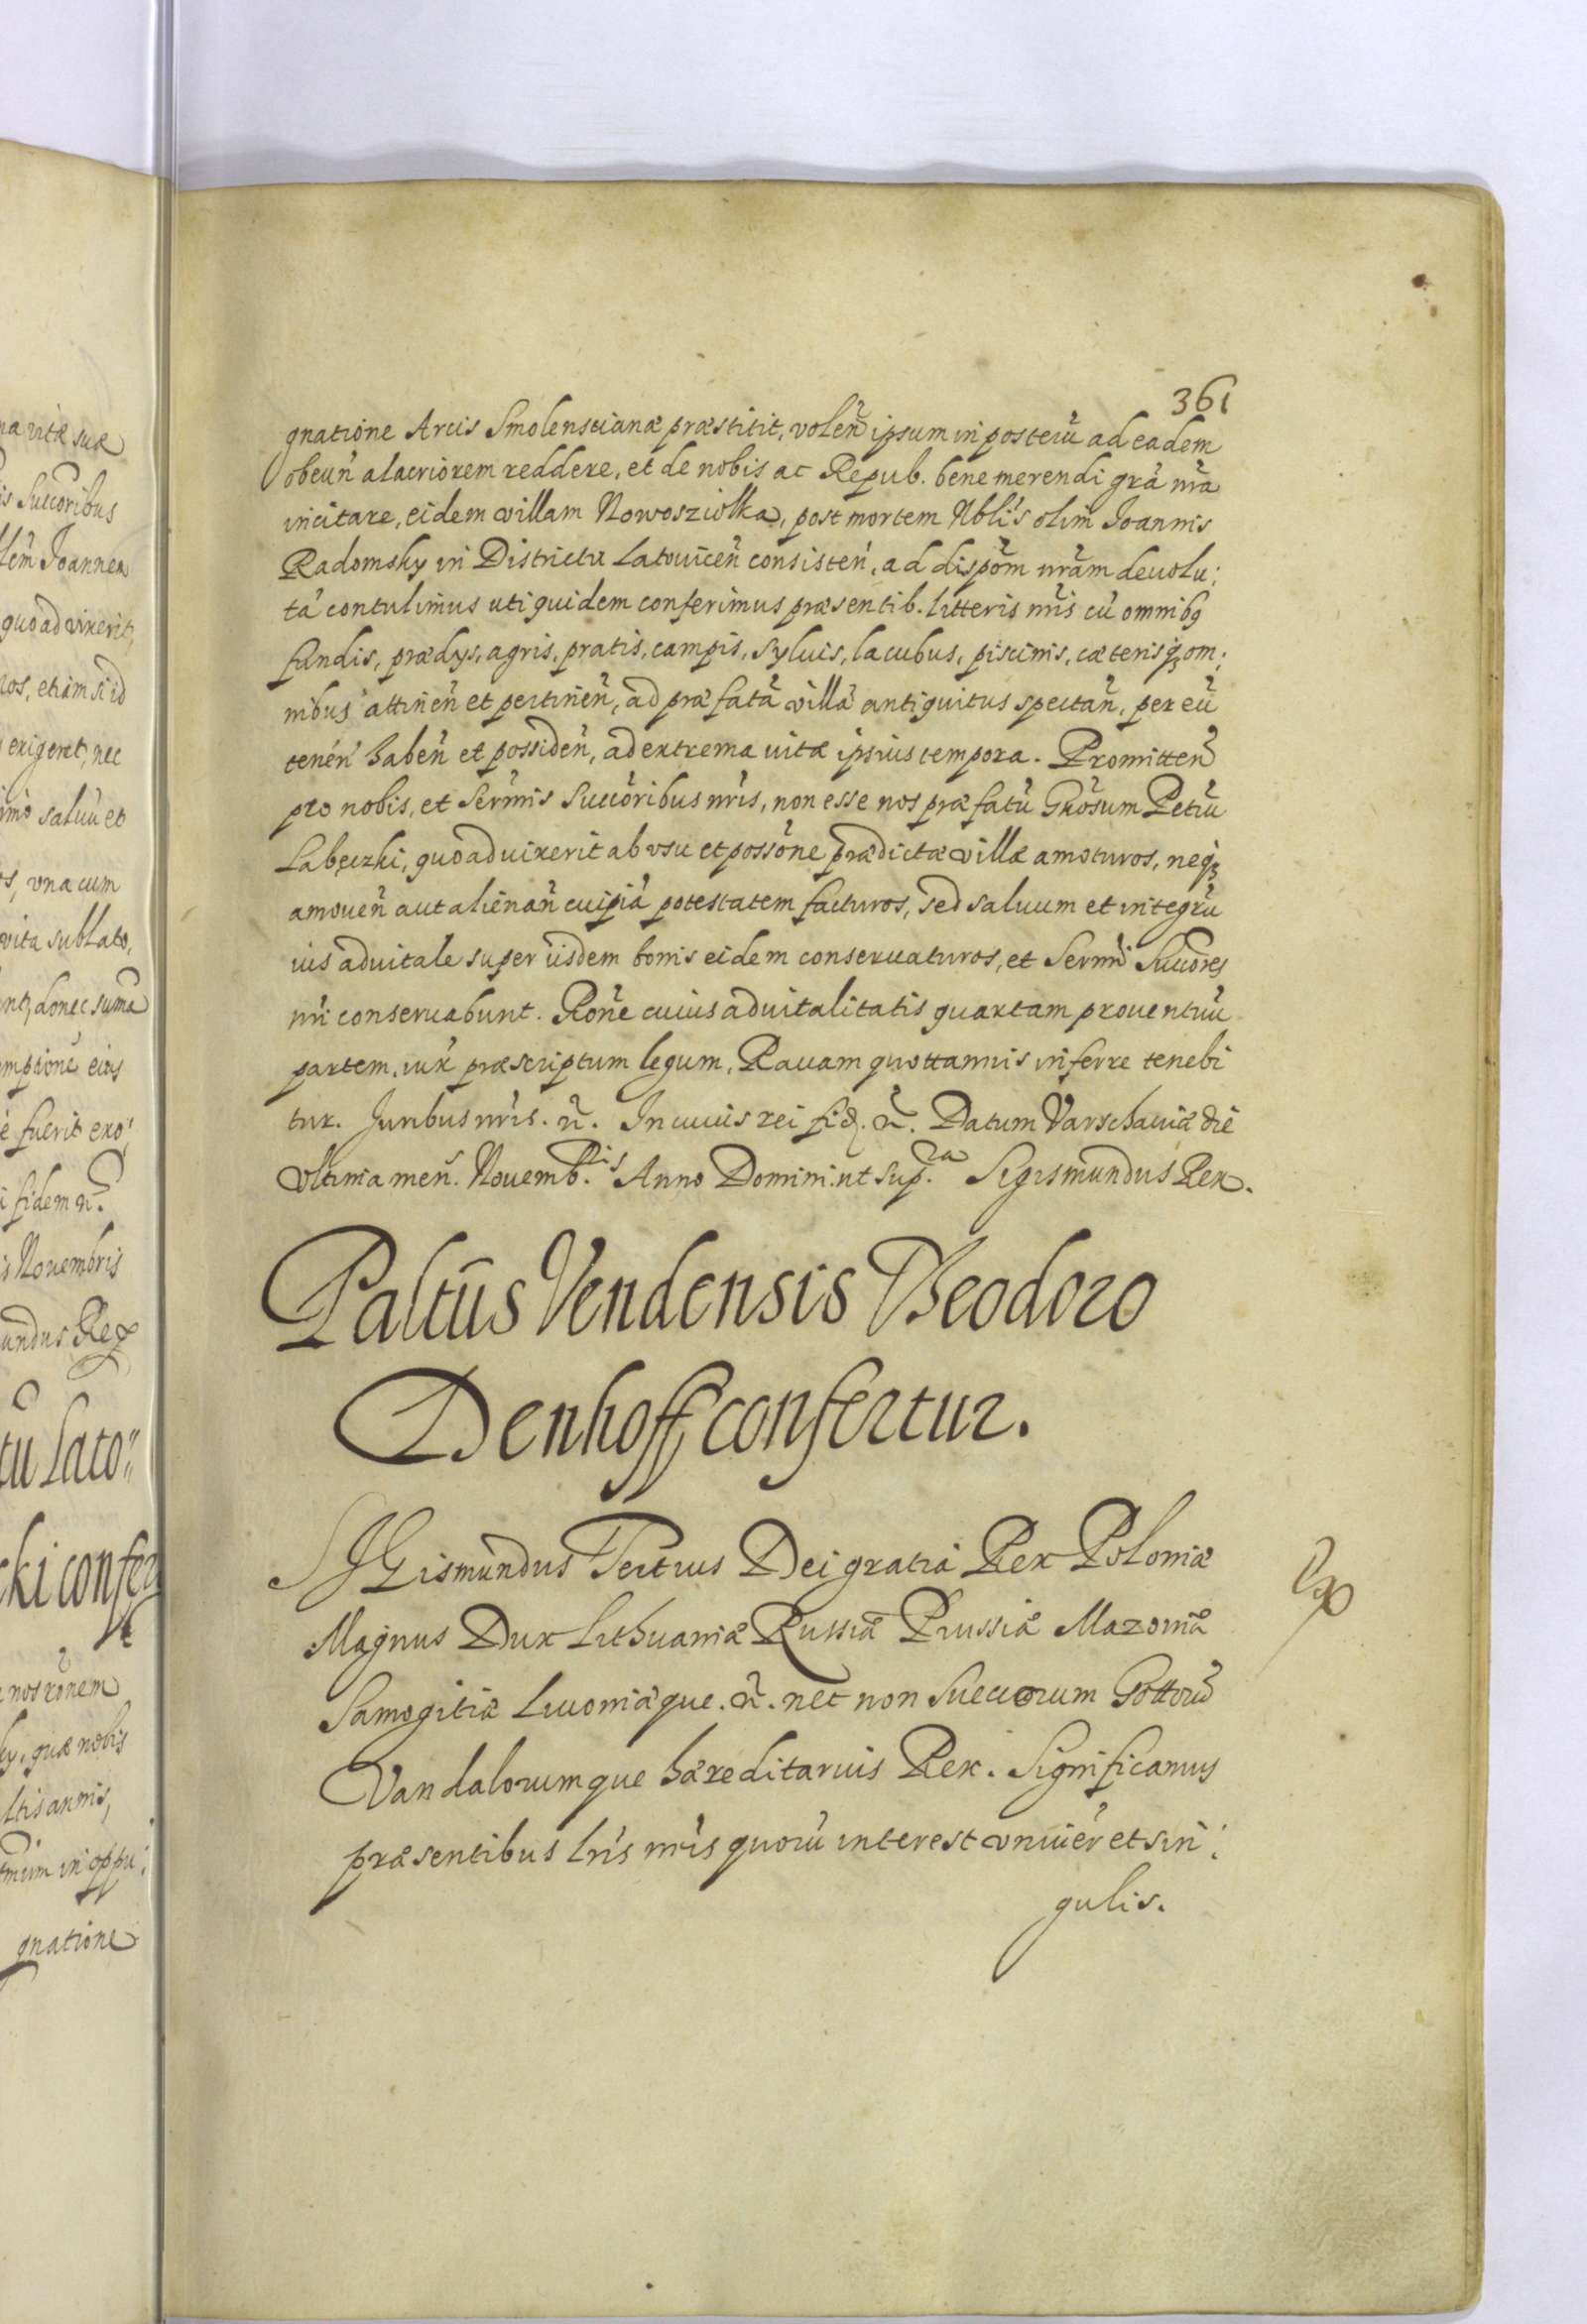 na vitæ suæ
is Succoribus
lem Joannea
quoad vixerit,
ros, etiam si id
erigeret, nec
saluũ et
ts, vna cum
vita sublato,
nt, donec suma
emptione eius
e fuerit exo:
fidem
is Nouembris
undus Rex
tũ Lato:
cki confer
nos rõnem
ky, quæ nobis
ltis annis,
in oppu:
gnatione
361
gnatione Arcis Smolenscianæ præstitit, voleñ ipsum in posterũ ad eadem
obeuñ alacriorem reddere, et de nobis ac Repub. bene merendi grã nrã
incitare, eidem villam Nowosziolka, post mortem Nblis olim Joannis
Radomsky in Districtu Latouiceñ consisteñ, ad dispõm nrãm deuolu:
tã contulimus uti quidem conferimus præsentib. litteris nris cũ omnibq
fundis, prædys, agris, pratis, campis, syluis, lacubus, piscinis, cæterisq3 om:
nibus attineñ et pertineñ, ad præfatã villã antiquitus spectañ, per eũ
teneñ habeñ et possideñ, ad extrema vitæ ipsius tempora. Promitteñ
pro nobis, et Sermis Succõribus nris, non esse nos præfatũ Gnõsum Petrũ
Labęczki, quoad vixerit ab vsu et possõne prædictæ villæ amoturos, neq3
amoueñ aut alienañ cuipiã potestatem facturos, sed saluum et integrũ
ius aduitale super iisdem bonis eidem conseruaturos, et Sermi Succores
nri conseruabunt. Rõne cuius aduitalitatis quartam prouentuũ
partem, iux præscriptum legum, Rauam quottannis inferre tenebi
tur. Juribus nris. ñ. In cuius rei fid. ñ. Datum Varschauiæ die
Vltima meñ. Nouemb.ris Anno Domini ut sup.ra Sigismundus Rex.
Paltũs Vendensis Theodoro
Denhoff confertur.
SIGismundus Tertius Dei gratia Rex Poloniæ
Magnus Dux Lithuaniæ Russiæ Prussiæ Mazouiæ
Samogitiæ Liuoniæque. ñ. nec non Suecorum Gottorũ
Vandalorumque hæreditarius Rex. Significamus
præsentibus lris nris quorũ interest vniuer et sin:
gulis.